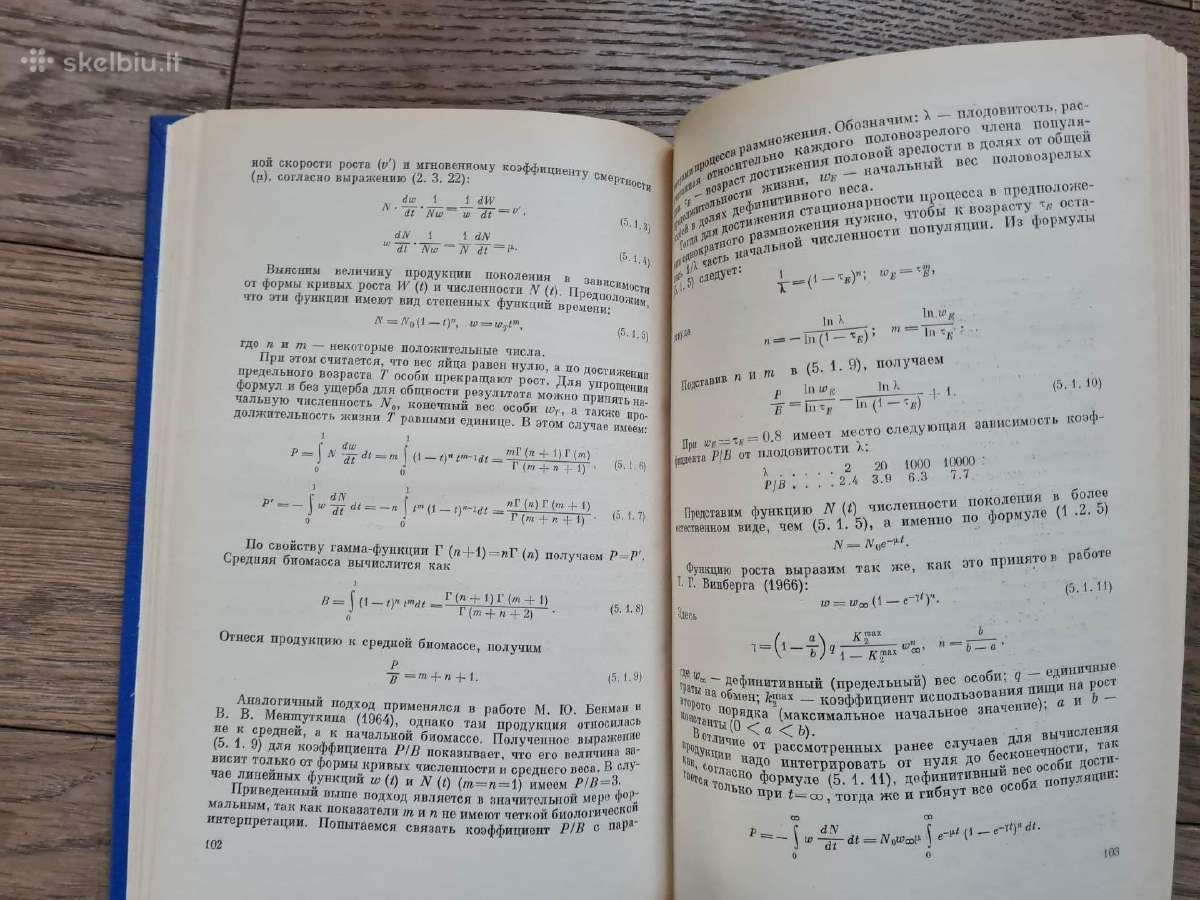 skelbiu.lt
ной скорости роста (v′) и мгновенному коэффициенту смертности
(μ), согласно выражению (2. 3. 22):
N · dw/dt · 1/Nw = 1/w dW/dt = v′, (5.1.3)
w dN/dt · 1/Nw = 1/N dN/dt = μ. (5.1.4)
Выясним величину продукции поколения в зависимости
от формы кривых роста W (t) и численности N (t). Предположим,
что эти функции имеют вид степенных функций времени:
N = N₀ (1 — t)ⁿ, w = w_T tᵐ, (5.1.5)
где n и m — некоторые положительные числа.
При этом считается, что вес яйца равен нулю, а по достижении
предельного возраста T особи прекращают рост. Для упрощения
формул и без ущерба для общности результата можно принять на-
чальную численность N₀, конечный вес особи w_T, а также про-
должительность жизни T равными единице. В этом случае имеем:
P = ∫₀¹ N dw/dt dt = m ∫₀¹ (1 — t)ⁿ tᵐ⁻¹dt = mΓ (n + 1) Γ (m) / Γ (m + n + 1). (5.1.6)
P′ = — ∫₀¹ w dN/dt dt = —n ∫₀¹ tᵐ (1 — t)ⁿ⁻¹dt = nΓ (n) Γ (m + 1) / Γ (m + n + 1). (5.1.7)
По свойству гамма-функции Γ (n+1)=nΓ (n) получаем P=P′.
Средняя биомасса вычислится как
B = ∫₀¹ (1 — t)ⁿ tᵐdt = Γ (n + 1) Γ (m + 1) / Γ (m + n + 2). (5.1.8)
Отнеся продукцию к средней биомассе, получим
P/B = m + n + 1. (5.1.9)
Аналогичный подход применялся в работе М. Ю. Бекман и
В. В. Меншуткина (1964), однако там продукция относилась
не к средней, а к начальной биомассе. Полученное выражение
(5. 1. 9) для коэффициента P/B показывает, что его величина за-
висит только от формы кривых численности и среднего веса. В слу-
чае линейных функций w (t) и N (t) (m=n=1) имеем P/B=3.
Приведенный выше подход является в значительной мере фор-
мальным, так как показатели m и n не имеют четкой биологической
интерпретации. Попытаемся связать коэффициент P/B с пара-
102
процесса размножения. Обозначим: λ — плодовитость, рас-
относительно каждого половозрелого члена популя-
τ_E — возраст достижения половой зрелости в долях от общей
жизни, w_E — начальный вес половозрелых
в долях дефинитивного веса.
Тогда для достижения стационарности процесса в предположе-
однократного размножения нужно, чтобы к возрасту τ_E оста-
1/λ часть начальной численности популяции. Из формулы
1. 5) следует:
1/λ = (1 — τ_E)ⁿ; w_E = τ_Eᵐ,
n = — ln λ / ln (1 — τ_E); m = ln w_E / ln τ_E.
Подставив n и m в (5. 1. 9), получаем
P/B = ln w_E / ln τ_E — ln λ / ln (1 — τ_E) + 1. (5.1.10)
При w_E = τ_E = 0.8 имеет место следующая зависимость коэф-
фициента P/B от плодовитости λ:
λ . . . . . 2 20 1000 10000
P/B . . . . 2.4 3.9 6.3 7.7
Представим функцию N (t) численности поколения в более
естественном виде, чем (5. 1. 5), а именно по формуле (1 .2. 5)
N = N₀e^(-μt).
Функцию роста выразим так же, как это принято в работе
Г. Г. Винберга (1966):
w = w∞ (1 — e^(-γt))ⁿ. (5.1.11)
Здесь
γ = (1 — a/b) q K₂ᵐᵃˣ / (1 — K₂ᵐᵃˣ) w∞ⁿ, n = b / (b — a).
где w∞ — дефинитивный (предельный) вес особи; q — единичные
траты на обмен; k₂ᵐᵃˣ — коэффициент использования пищи на рост
второго порядка (максимальное начальное значение); a и b —
константы (0 < a < b).
В отличие от рассмотренных ранее случаев для вычисления
продукции надо интегрировать от нуля до бесконечности, так
как, согласно формуле (5. 1. 11), дефинитивный вес особи дости-
гается только при t=∞, тогда же и гибнут все особи популяции:
P = — ∫₀^∞ w dN/dt dt = N₀w∞μ ∫₀^∞ e^(-μt) (1 — e^(-γt))ⁿ dt.
103